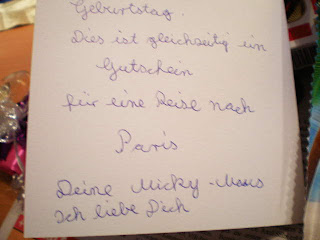 Geburtstag.
Dies ist gleichzeitig ein
Gutschein
für eine Reise nach
Paris
Deine Micky-Maus
Ich liebe Dich